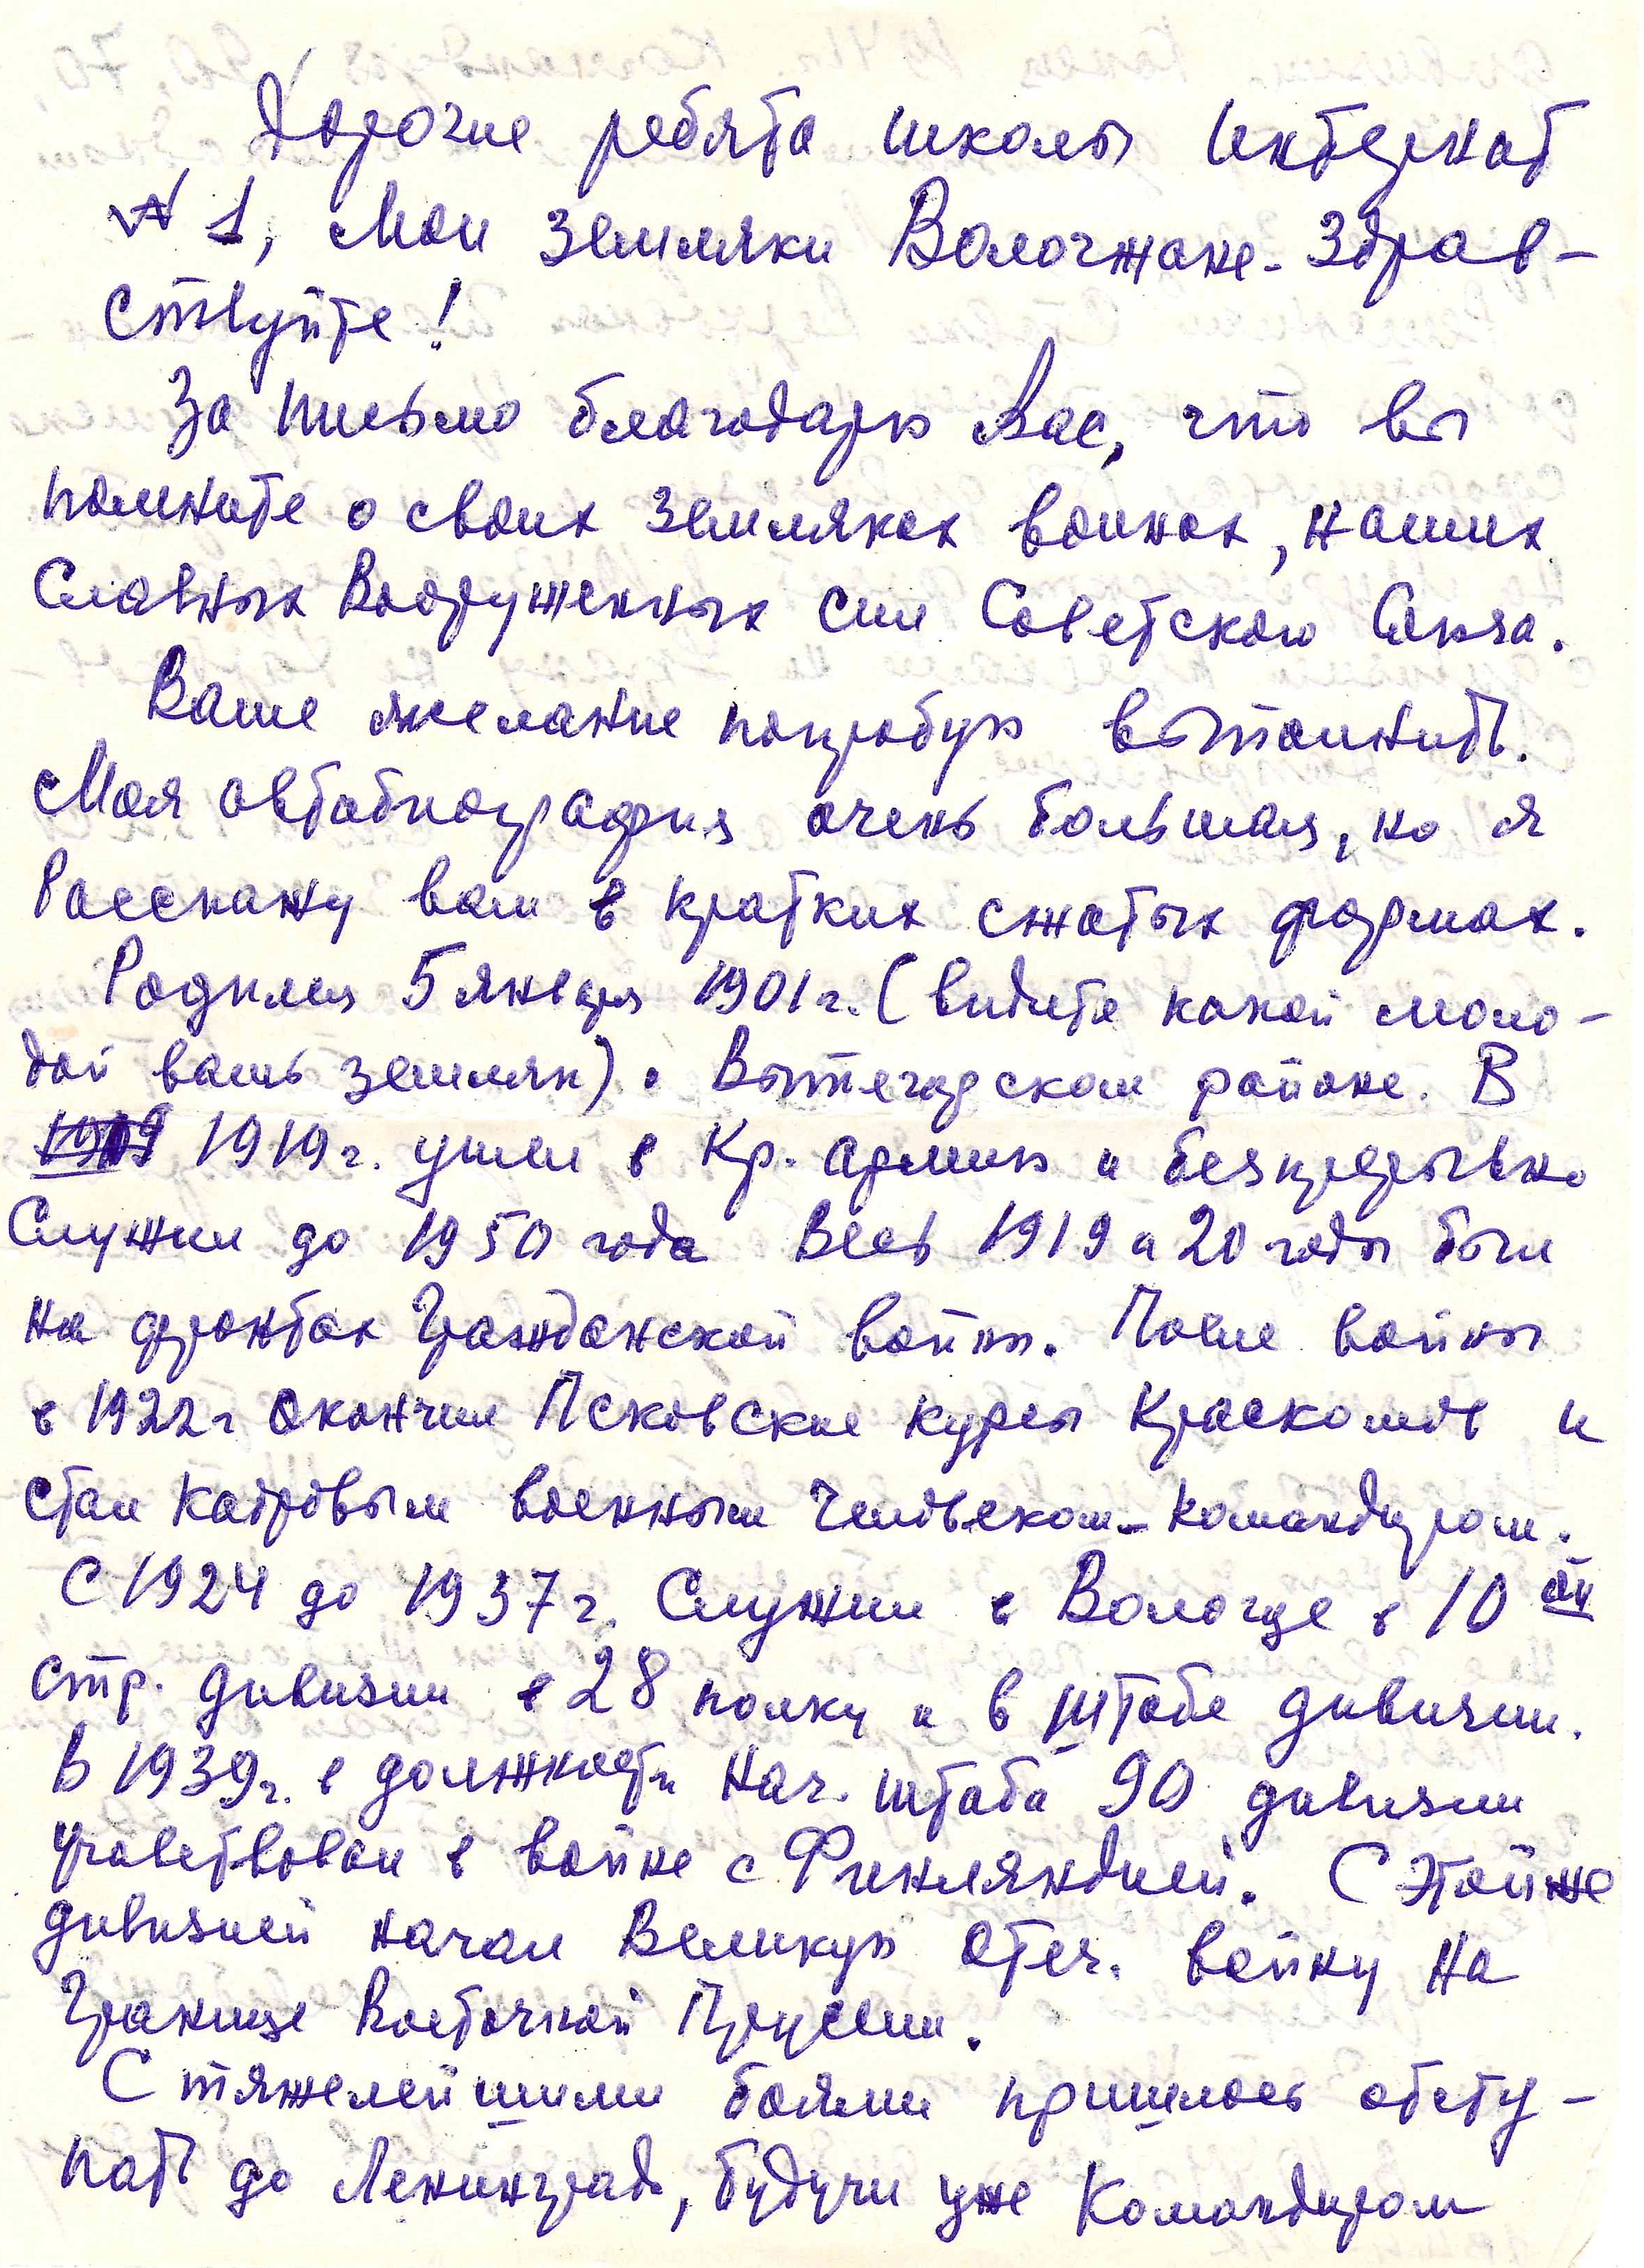 Дорогие ребята школы интернат
№ 1, Мои земляки Вологжане - Здрав-
ствуйте!
За письмо благодарю Вас, что вы
помните о своих земляках воинах, наших
Славных Вооруженных сил Советского Союза.
Ваше желание попробую выполнить.
Моя автобиография очень большая, но я
Расскажу вам в кратких сжатых формах.
Родился 5 января 1901 г. (видите какой моло-
дой вашь земляк). Вытегорском районе. В
1919 г. ушел в Кр. армию и безпрерывно
Служил до 1950 года Весь 1919 и 20 годы был
на фронтах Гражданской войны. После войны
в 1922 г окончил Псковские курсы Краскомов и
стал Кадровым военным Человеком - Командиром.
С 1924 до 1937 г. Служил в Вологде в 10 ой
стр. дивизии в 28 полку и в штабе дивизии.
В 1939 г. в должности Нач. штаба 90 дивизии
участвовал в войне с Финляндией. С Этой же
дивизией начал Великую Отеч. войну На
Границе Восточной Пруссии.
С тяжелейшими боями пришлось отсту-
пать до Ленинграда, будучи уже Командиром